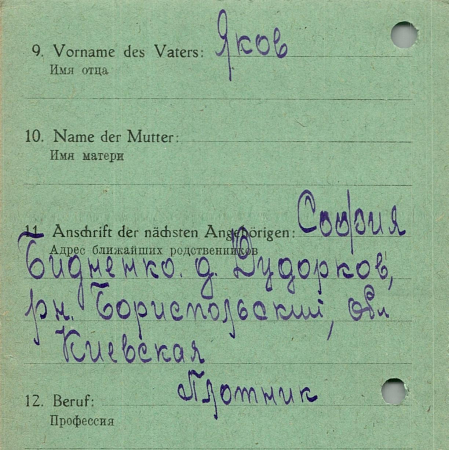 9. Vorname des Vaters: Яков
Имя отца
10. Name der Mutter:
Имя матери
11. Anschrift der nächsten Angehörigen: София
Адрес ближайших родственников
Бидненко. д. Дудорков,
рн. Бориспольский, обл
Киевская
Плотник
12. Beruf:
Профессия